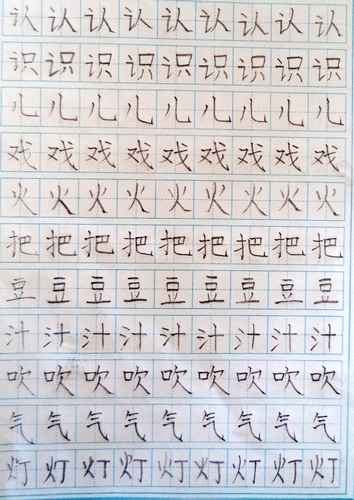 认认认认认认认认认
识识识识识识识识识
儿儿儿儿儿儿儿儿儿
戏戏戏戏戏戏戏戏戏
火火火火火火火火火
把把把把把把把把把
豆豆豆豆豆豆豆豆豆
汁汁汁汁汁汁汁汁汁
吹吹吹吹吹吹吹吹吹
气气气气气气气气气
灯灯灯灯灯灯灯灯灯